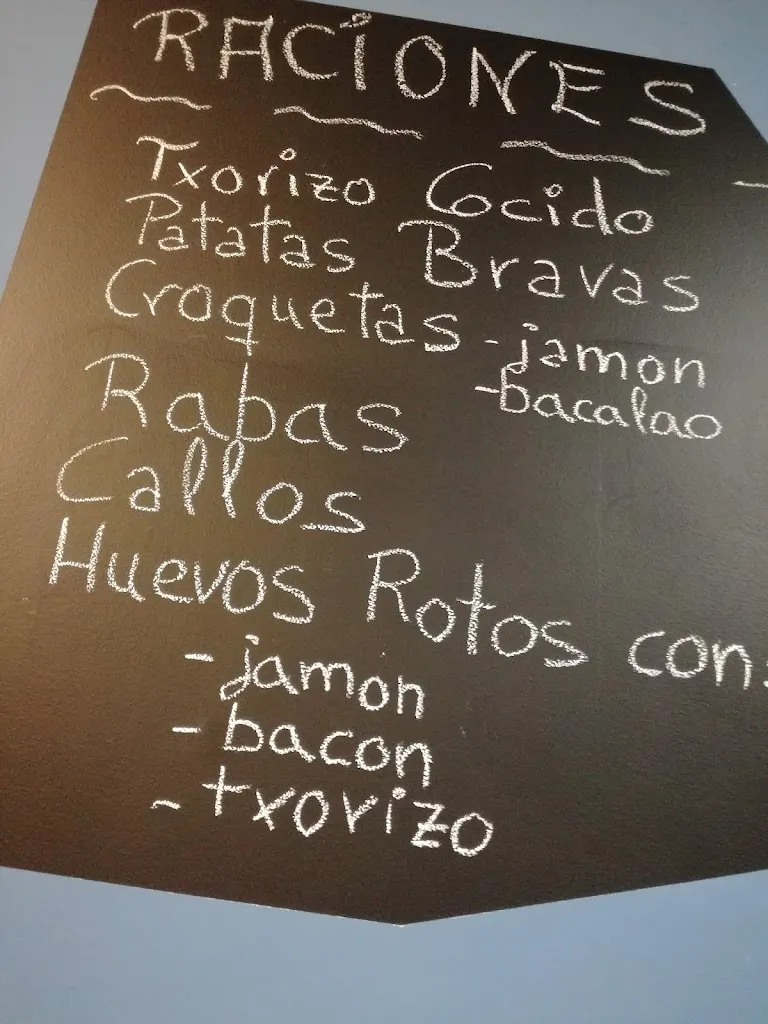 RACIONES
Txorizo Cocido
Patatas Bravas
Croquetas - jamon
- bacalao
Rabas
Callos
Huevos Rotos con:
- jamon
- bacon
- txorizo